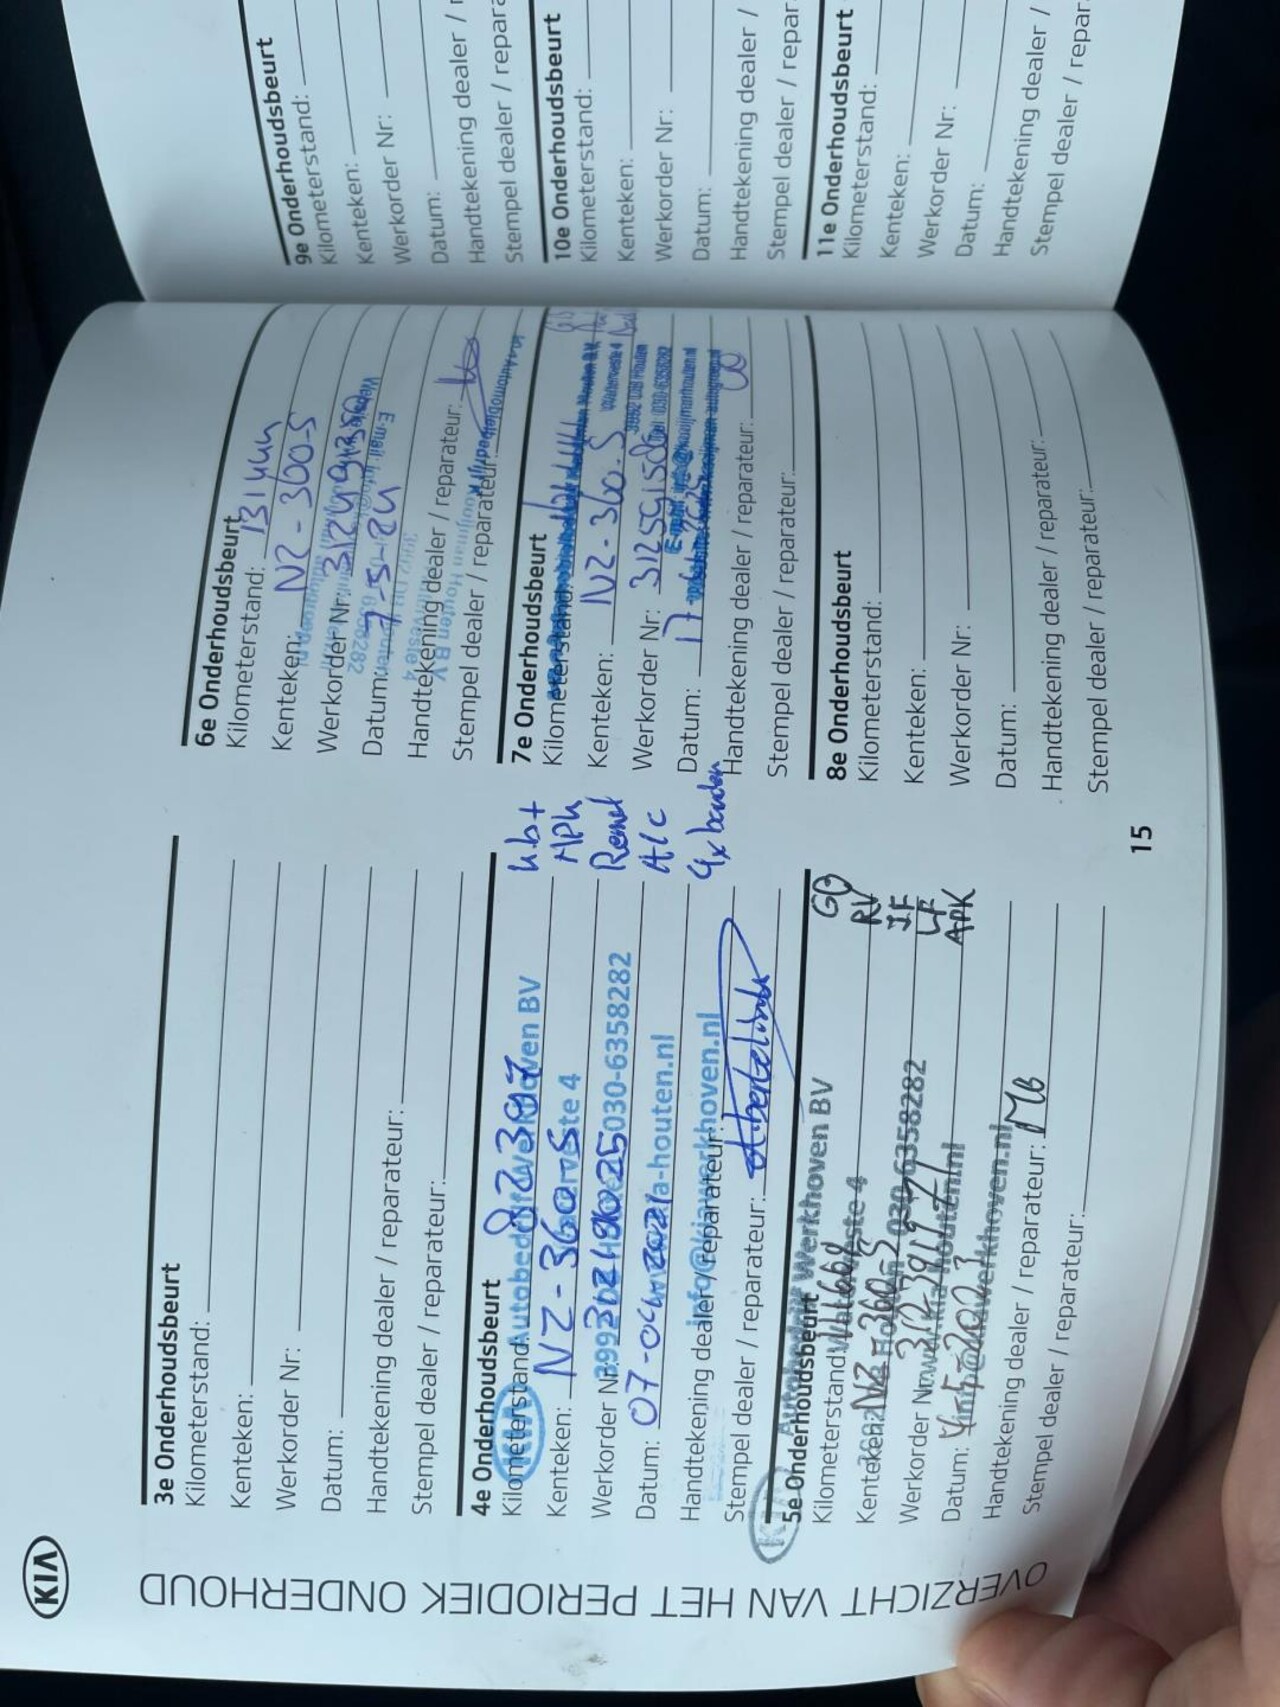 KIA
OVERZICHT VAN HET PERIODIEK ONDERHOUD
3e Onderhoudsbeurt
Kilometerstand:
Kenteken:
Werkorder Nr:
Datum:
Handtekening dealer / reparateur:
Stempel dealer / reparateur:
4e Onderhoudsbeurt
Kilometerstand: 82397
Kenteken: NZ-360-S
Werkorder Nr:
Datum: 07-04-2021
Handtekening dealer / reparateur:
Stempel dealer / reparateur:
KIA Autobedrijf Werkhoven BV
Waterveste 4
030-6358282
www.kia-houten.nl
info@kiawerkhoven.nl
APK
A/C
4x banden
5e Onderhoudsbeurt
Kilometerstand:
Kenteken: NZ-360-S
Werkorder Nr:
Datum: 2023
Handtekening dealer / reparateur: MB
Stempel dealer / reparateur:
KIA Autobedrijf Werkhoven BV
Waterveste 4
030-6358282
www.kia-houten.nl
info@kiawerkhoven.nl
RV
IF
LF
APK
15
6e Onderhoudsbeurt
Kilometerstand:
Kenteken: NZ-360-S
Werkorder Nr: 31249350
Datum: 7-5-24
Handtekening dealer / reparateur:
Stempel dealer / reparateur:
7e Onderhoudsbeurt
Kilometerstand:
Kenteken: NZ-360-S
Werkorder Nr:
Datum: 17
Handtekening dealer / reparateur:
Stempel dealer / reparateur:
Waterveste 4
8e Onderhoudsbeurt
Kilometerstand:
Kenteken:
Werkorder Nr:
Datum:
Handtekening dealer / reparateur:
Stempel dealer / reparateur:
9e Onderhoudsbeurt
Kilometerstand:
Kenteken:
Werkorder Nr:
Datum:
Handtekening dealer /
Stempel dealer / repara
10e Onderhoudsbeurt
Kilometerstand:
Kenteken:
Werkorder Nr:
Datum:
Handtekening dealer /
Stempel dealer / repar
11e Onderhoudsbeurt
Kilometerstand:
Kenteken:
Werkorder Nr:
Datum:
Handtekening dealer /
Stempel dealer / repar